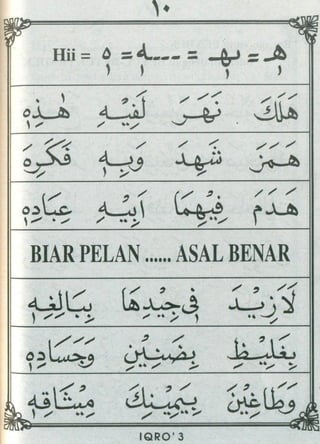 ١٠
Hii = هٖ = ـهٖـ = ـهٖ --- = هٖ
هَلَكَ نَهَرَ لَفِيْهِ هٰذِهٖ
هَمَزَ شَهِدَ وَبِهٖ فَكَرِهَ
هَدَمَ فِيْهِمَا اَبِيْهِ عِبَادِهٖ
BIAR PELAN ...... ASAL BENAR
لَازِيْدَ فِىْ جِيْدِهَا بِبَالِغِهٖ
بِغَلِيْظٍ بِضَنِيْنٍ وَجَسَادِهٖ
وَطَاغِيْنَ بِيَمِيْنِكَ مِيْثَاقِهٖ
IQRO' 3